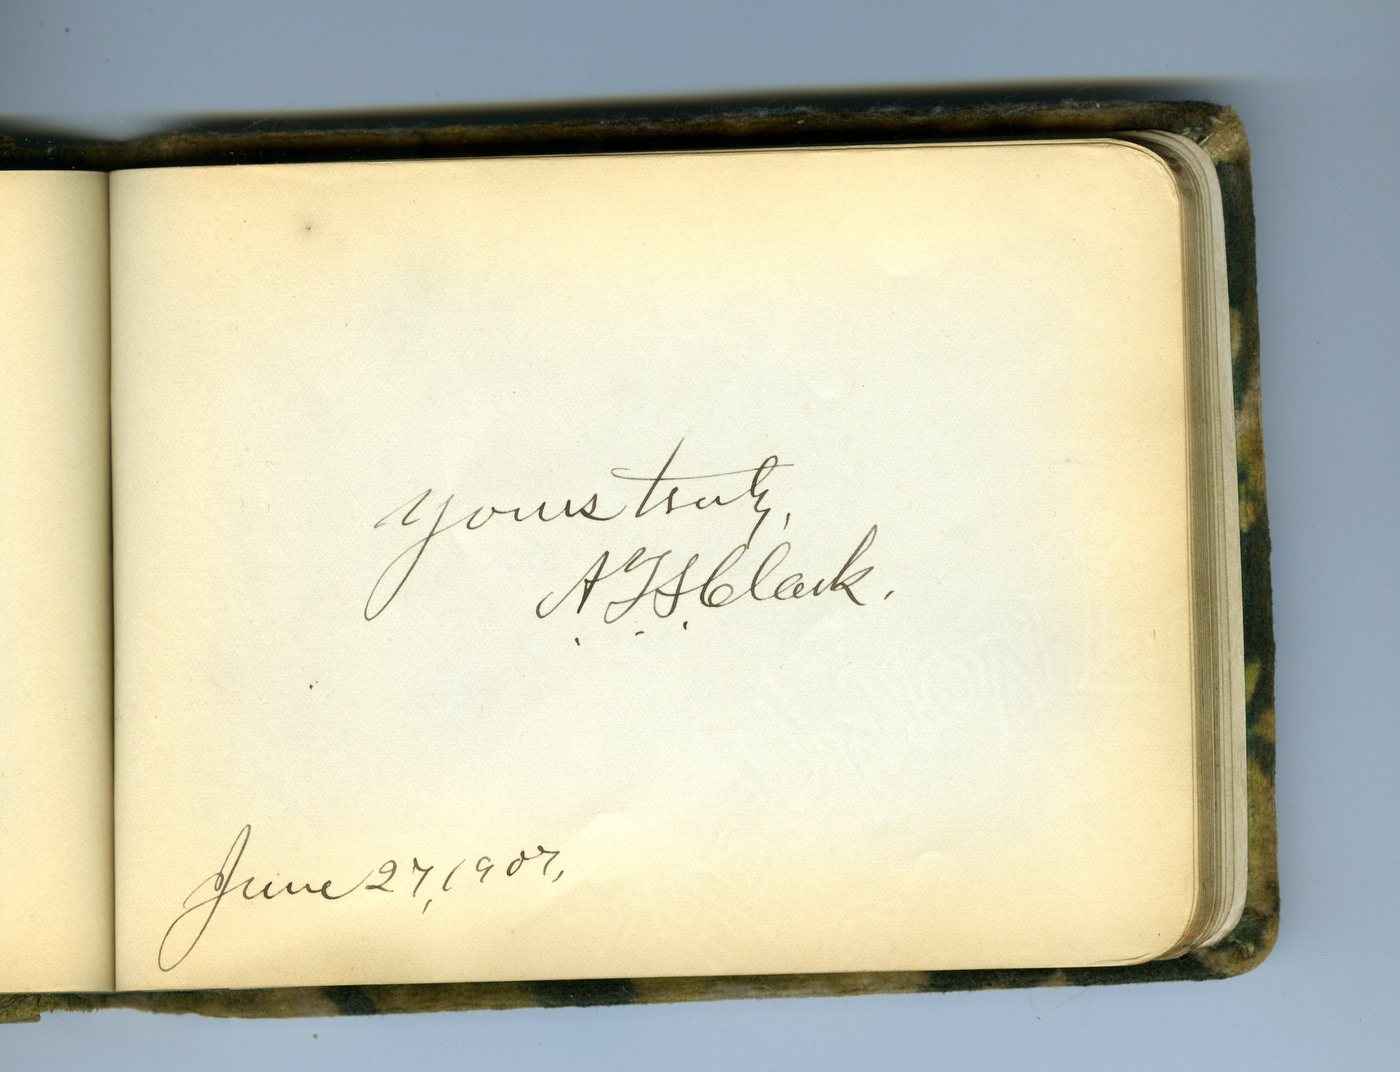 Yours truly,
A. T. S. Clark.
June 27, 1907,